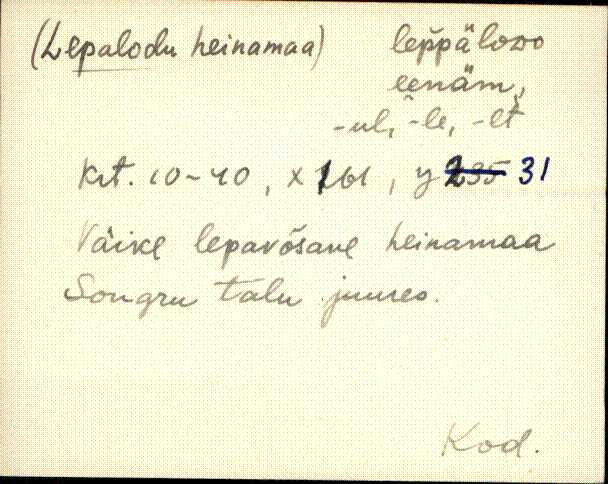 (Lepalodu heinamaa) leppälovo
eenäm,
-ul, -le, -lt
Krt. 10-40, x 161, y 235 31
Väike lepavõsane heinamaa
Songru talu juures.
Kod.